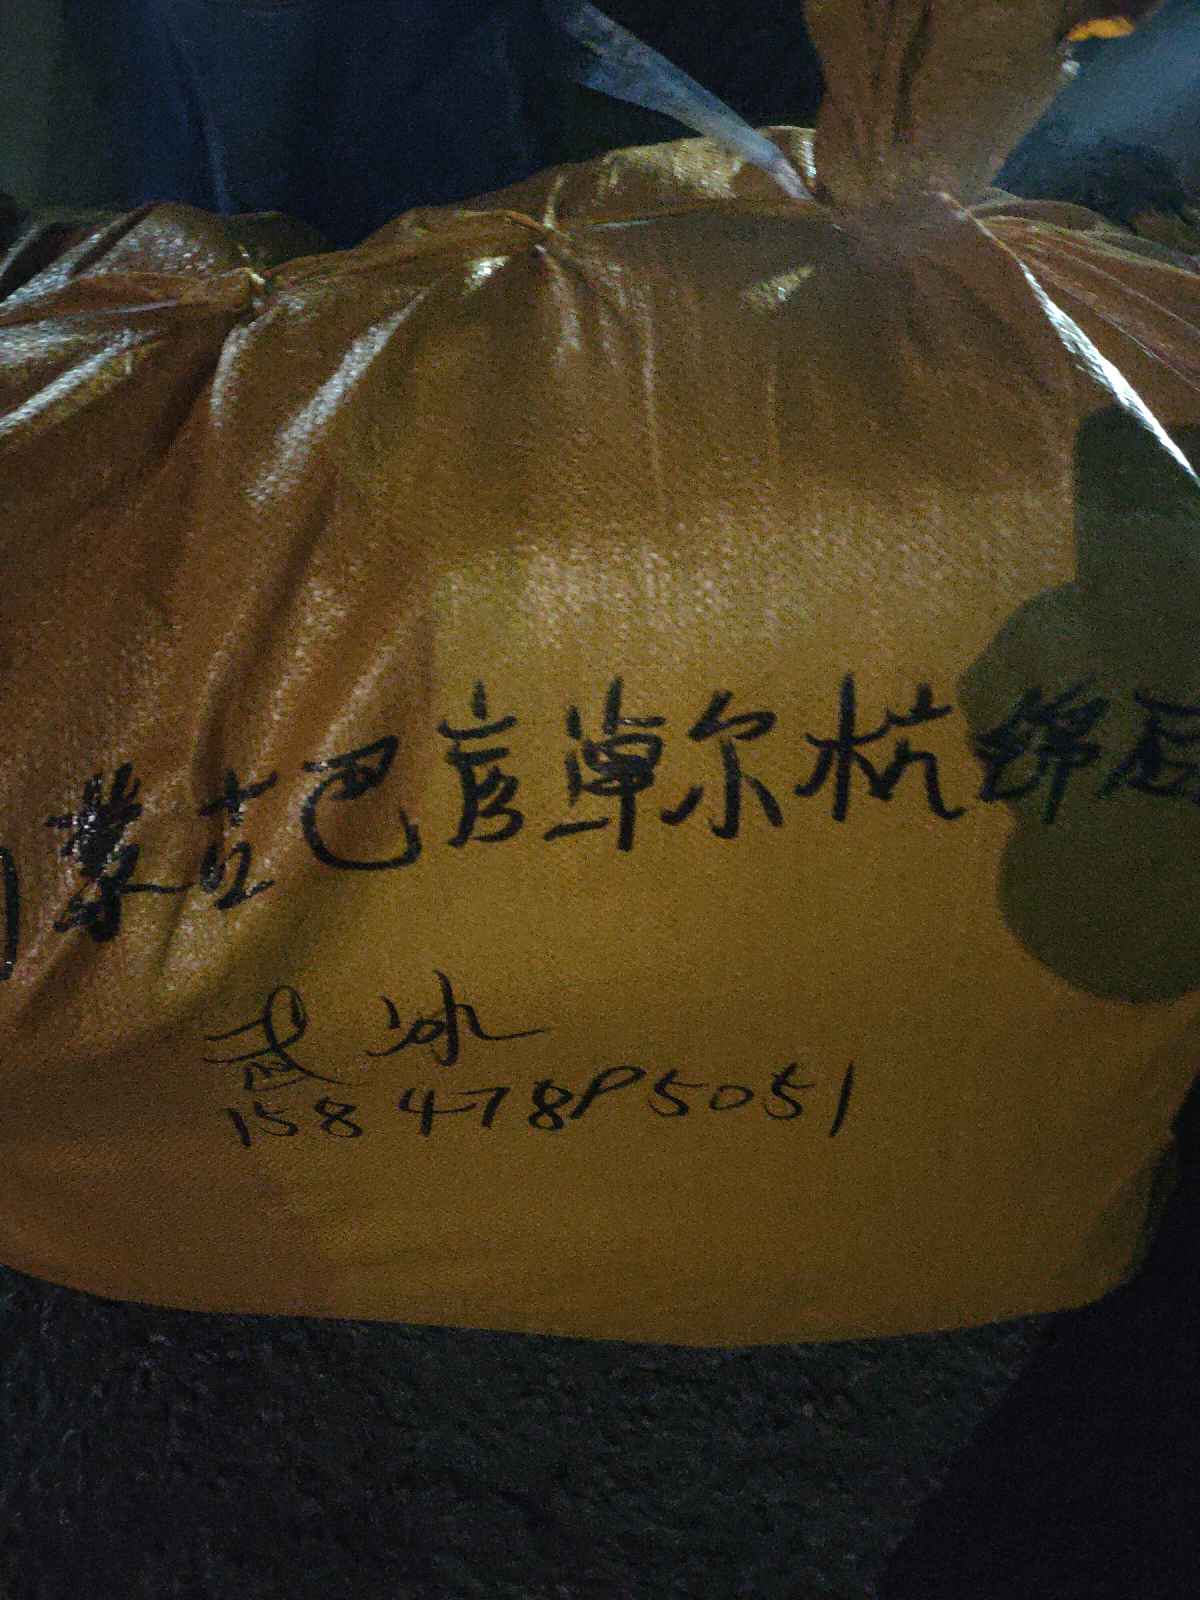 蒙古巴彦淖尔杭锦后
孟冰
15847895051